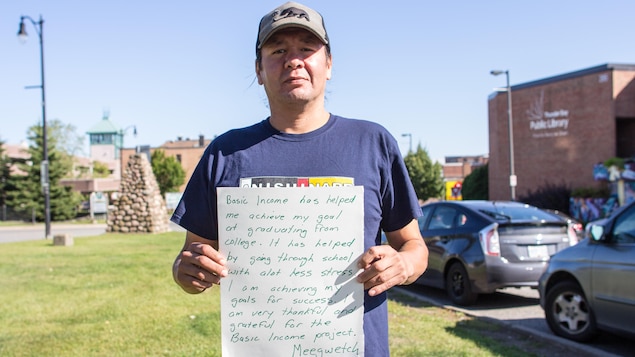 NISHINABE
Thunder Bay
Public Library
Basic Income has helped
me achieve my goal
of graduating from
college. It has helped
by going through school
with alot less stress
I am achieving my
goals for success
am very thankful and
grateful for the
Basic Income project.
Meegwetch